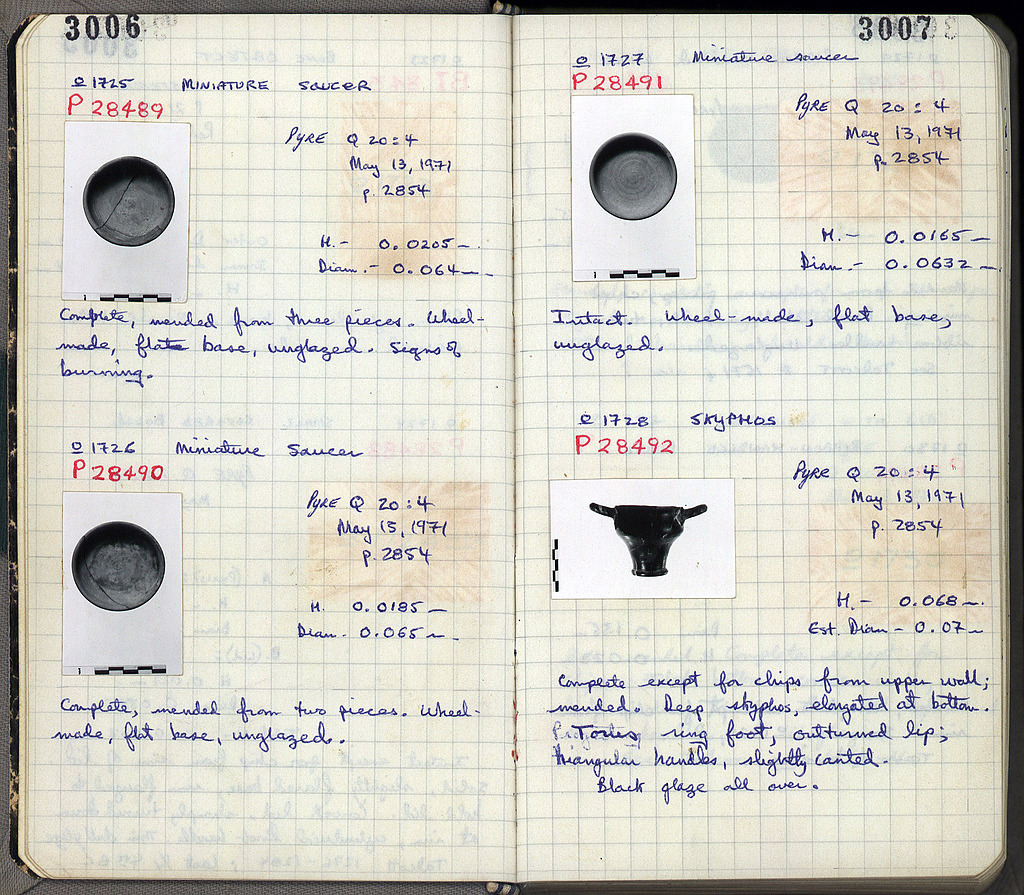 3006
o 1725 MINIATURE SAUCER
P 28489
PYRE Q 20:4
May 13, 1971
p. 2854
H.- 0.0205 m.
Diam.- 0.064 m.
Complete, mended from three pieces. Wheel-
made, flat base, unglazed. Signs of
burning.
o 1726 Miniature Saucer
P 28490
PYRE Q 20:4
May 13, 1971
p. 2854
H. 0.0185 m
Diam. 0.065 m.
Complete, mended from two pieces. Wheel-
made, flat base, unglazed.
3007
o 1727 Miniature saucer
P 28491
PYRE Q 20:4
May 13, 1971
p. 2854
H.- 0.0165 m
Diam.- 0.0632 m.
Intact. Wheel-made, flat base,
unglazed.
o 1728 SKYPHOS
P 28492
PYRE Q 20:4
May 13, 1971
p. 2854
H.- 0.068 m.
Est. Diam - 0.07 m
Complete except for chips from upper wall;
mended. Deep skyphos, elongated at bottom.
Torus ring foot, outturned lip;
triangular handles, slightly canted.
Black glaze all over.